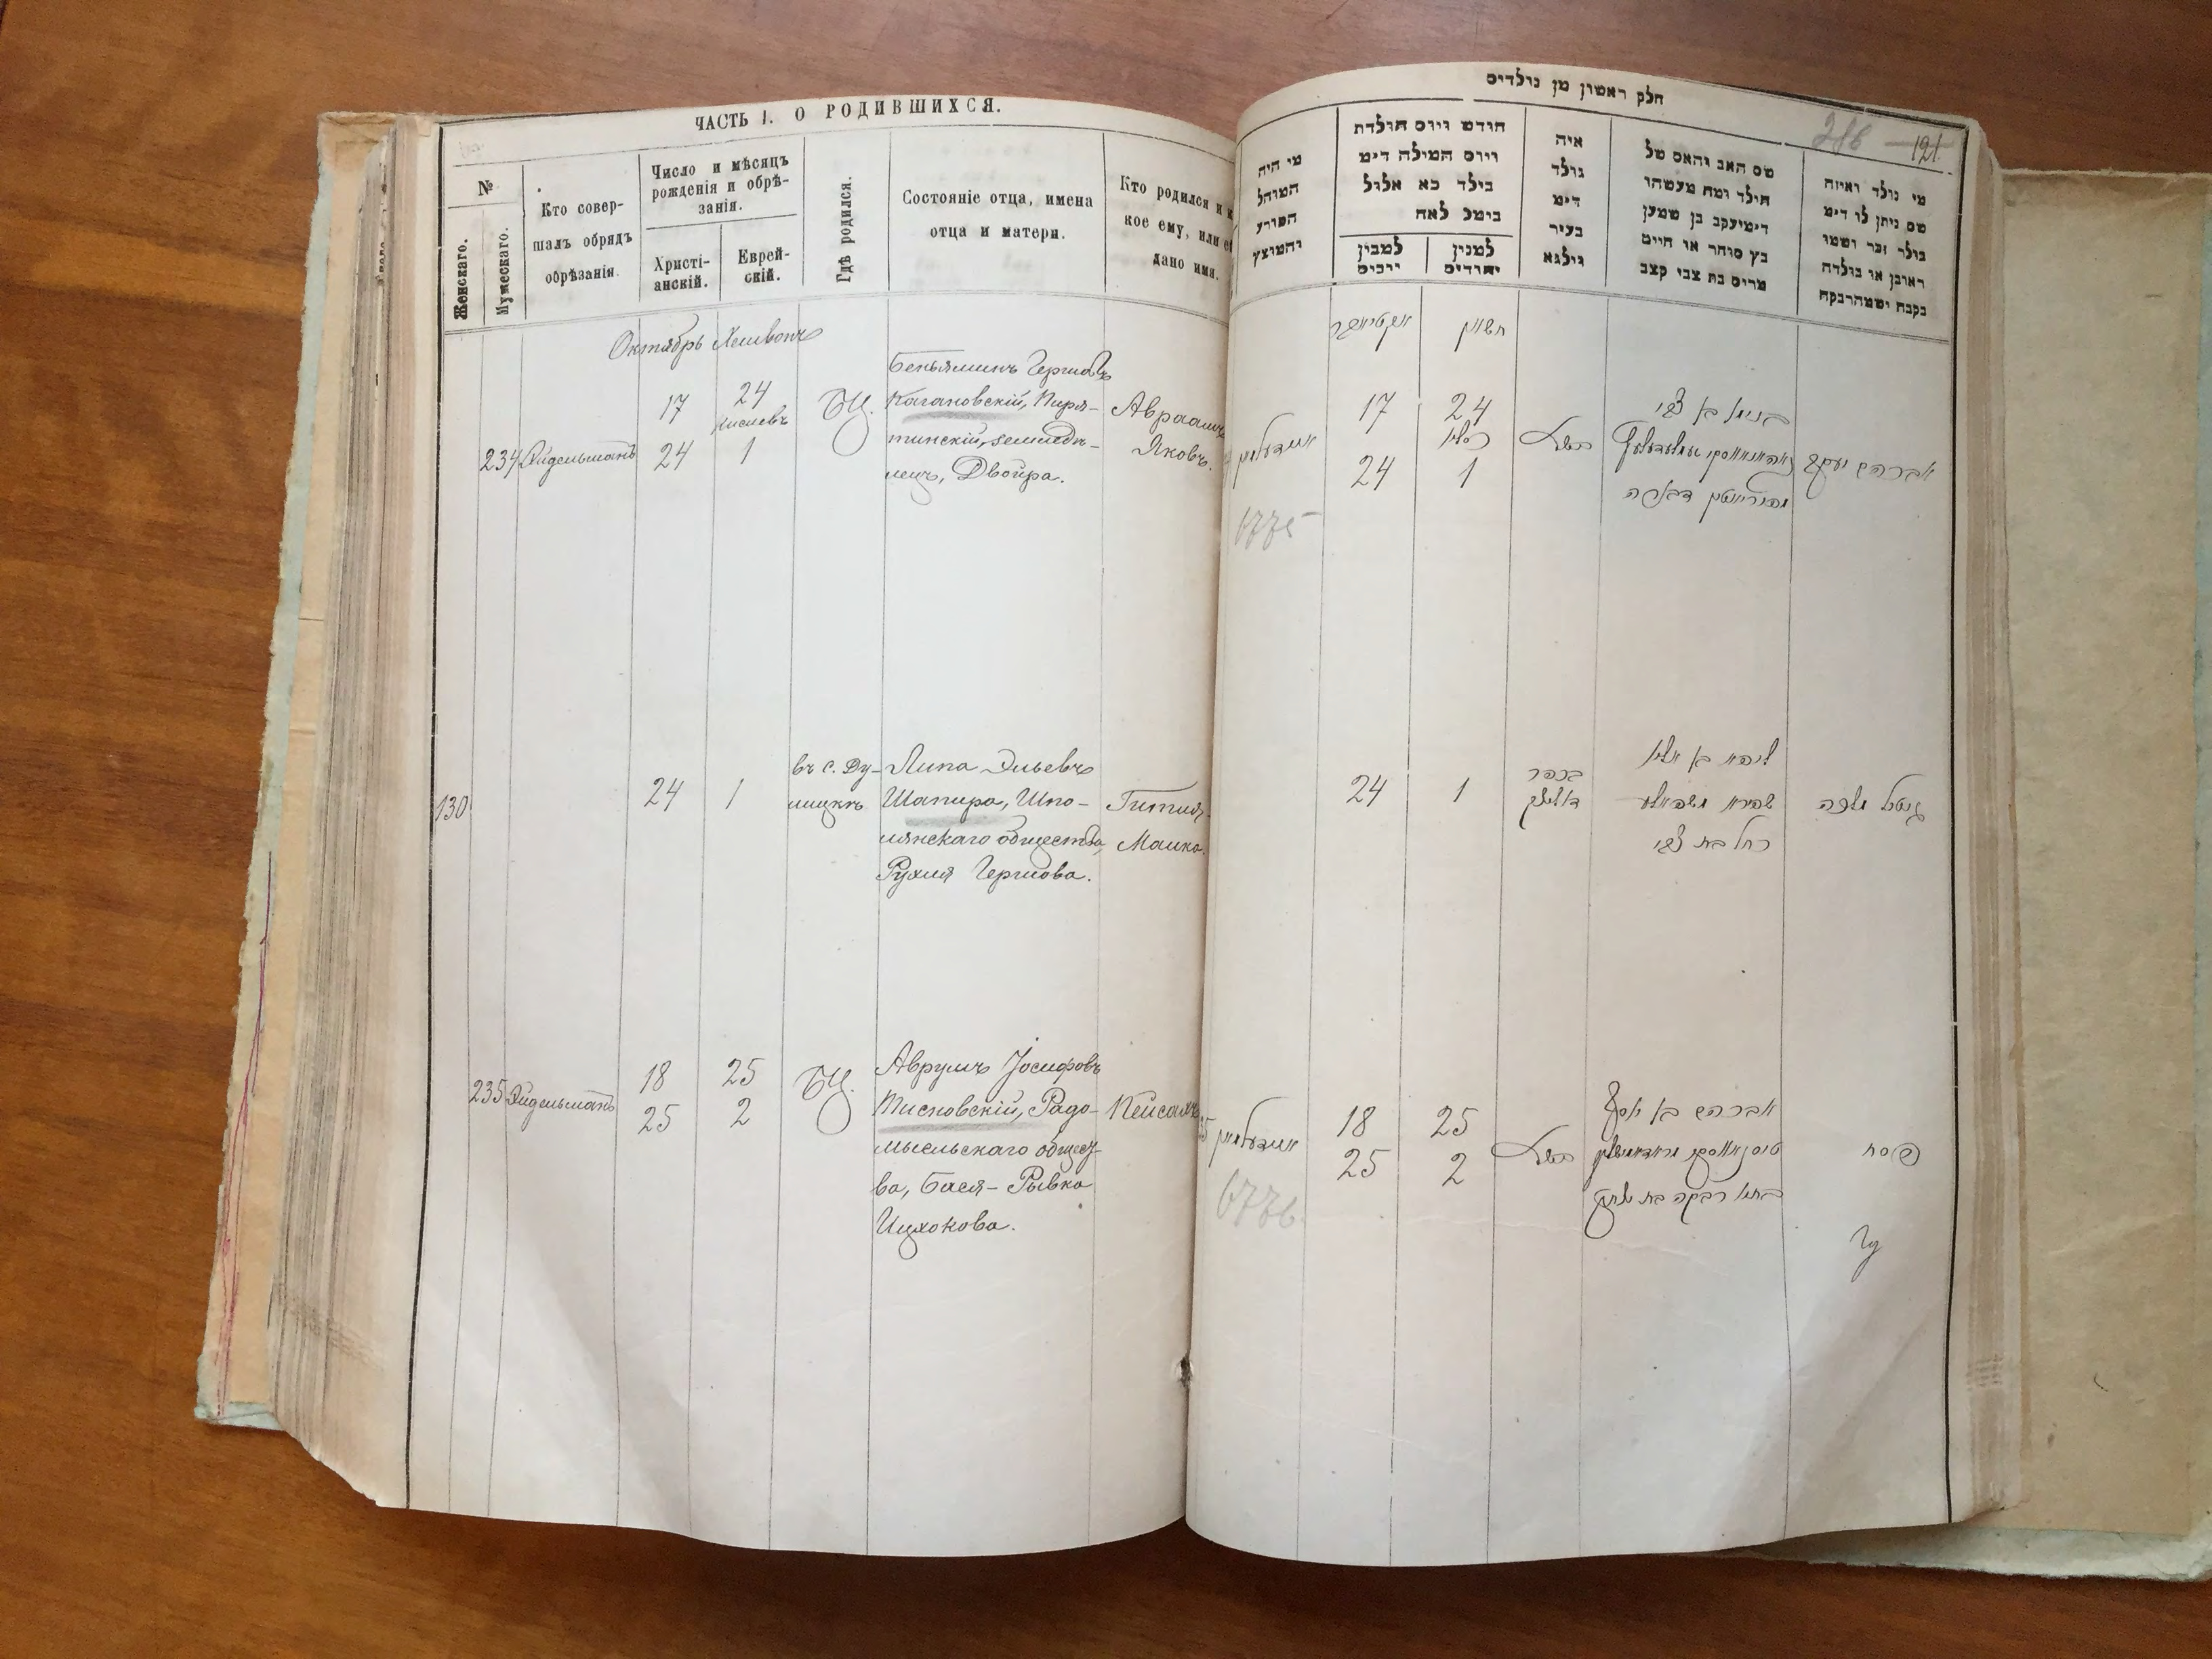 ЧАСТЬ I. О РОДИВШИХСЯ.
№
Женскаго.
Мужескаго.
Кто совер-
шалъ обрядъ
обрѣзанія.
Число и мѣсяцъ
рожденія и обрѣ-
занія.
Христі-
анскій.
Еврей-
скій.
Гдѣ родился.
Состояніе отца, имена
отца и матери.
Кто родился и к
кое ему, или е
дано имя.
Октябрь Хешвонъ
234 Эйдельманъ
17 24
Кислевъ
24 1
БЦ.
Беньяминъ Гершовъ
Кагановскій, Пиря-
тинскій, земледѣ-
лецъ, Двойра.
Авраамъ
Яковъ.
130
24 1
въ с. Ду-
лицкѣ
Липа Эльевъ
Шапиро, Шпо-
лянскаго общества,
Рухля Гершова.
Гитля-
Малка.
235 Эйдельманъ
18 25
25 2
БЦ.
Аврумъ Іосифовъ
Тисновскій, Радо-
мысльскаго общест-
ва, Бася-Рывка
Ицхокова.
Пейсахъ
חלק ראשון מן נולדים
121
מי היה
המוהל
הפורע
והמוצץ
חודש ויום תולדת
ויום המילה דימ
בילד כא אלול
בימל לאח
למבין
למנין
יהודים
איה
נולד
דימ
בעיר
ווילנא
שם האב והאם של
הילד ומה מעשהו
דימיעקב בן שמען
בץ סוחר או חיים
מרים בת צבי קצב
מי נולד ואיזה
שם ניתן לו דימ
נולד זכר ושמו
ראובן או נולדה
נקבה ושמה רבקה
אקטיאבר
חשון
17 24
כסליו
24 1
איידעלמאן
בנימן בן צבי
אברהם יעקב
6775
24 1
בכפר
ליפא בן אליי
שפירא
רחל בת צבי
גיטל מלכה
איידעלמאן
18 25
25 2
אברהם בן יוסף
באסי רבקה בת יצחק
פסח
6776